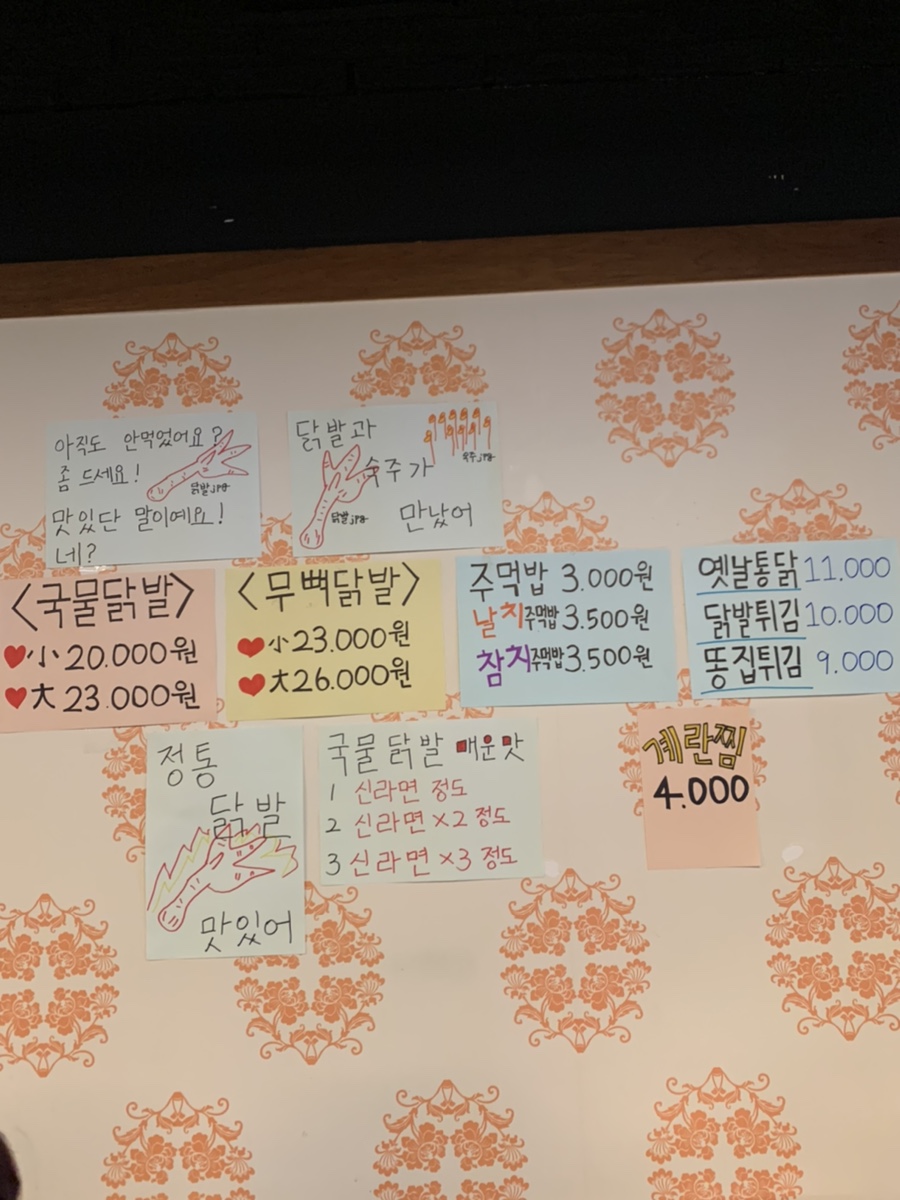 아직도 안먹었어요?
좀 드세요!
닭발.jpg
맛있단 말이예요!
네?
닭발과
숙주가
숙주.jpg
닭발.jpg
만났어
<국물닭발>
♥小 20.000원
♥大 23.000원
<무뼈닭발>
♥小 23.000원
♥大 26.000원
주먹밥 3.000원
날치주먹밥 3.500원
참치주먹밥 3.500원
옛날통닭 11.000
닭발튀김 10.000
똥집튀김 9.000
정통
닭발
맛있어
국물닭발 매운맛
1 신라면 정도
2 신라면×2 정도
3 신라면×3 정도
계란찜
4.000